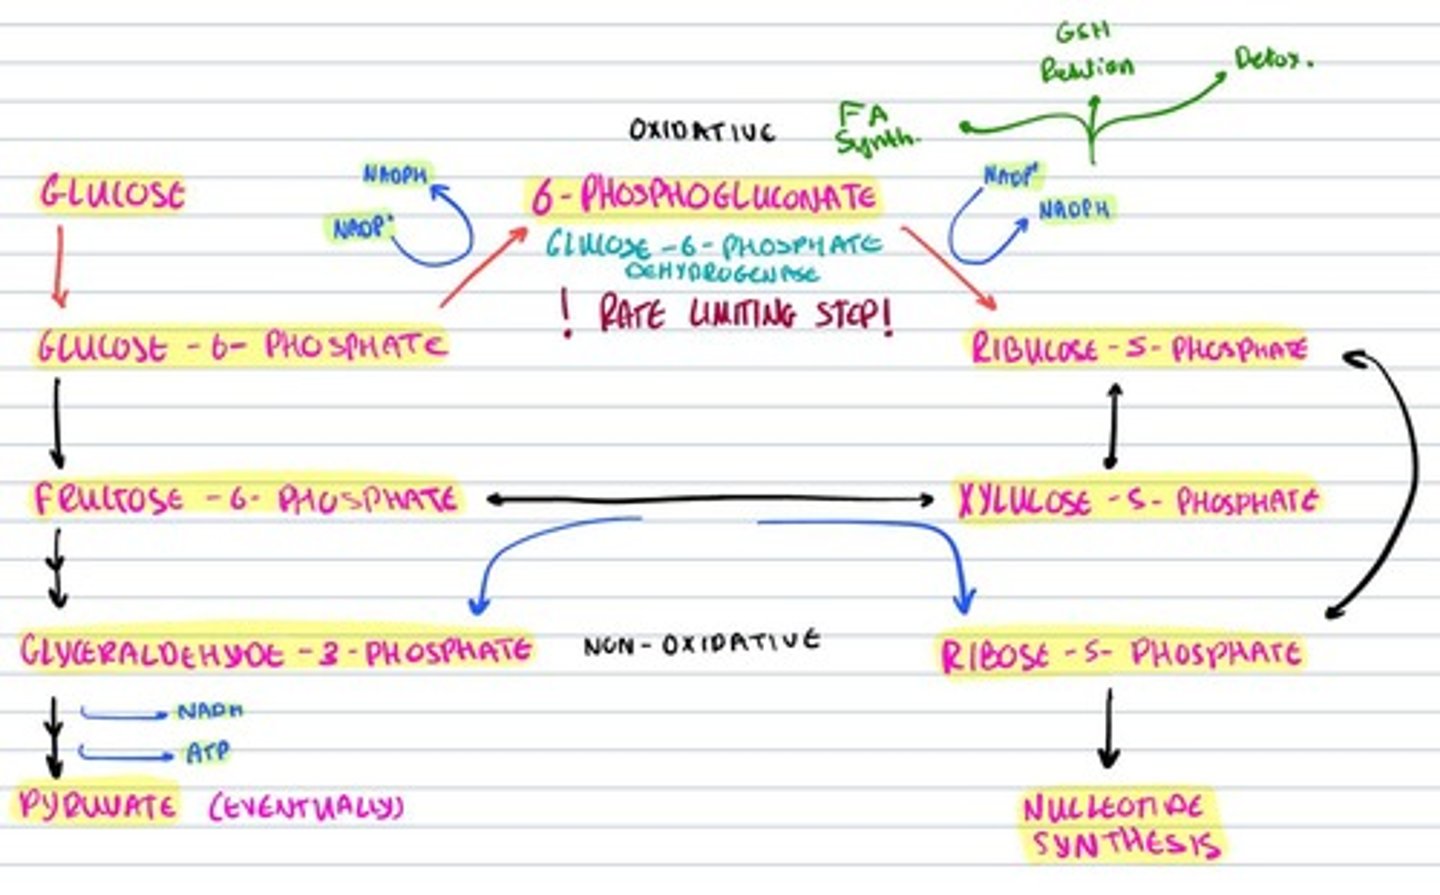 GSH
Detox.
FA
Synth.
OXIDATIVE
GLUCOSE
NADPH
NADP⁺
6-PHOSPHOGLUCONATE
NADP⁺
NADPH
GLUCOSE-6-PHOSPHATE
DEHYDROGENASE
! RATE LIMITING STEP!
GLUCOSE-6-PHOSPHATE
RIBULOSE-5-PHOSPHATE
FRUCTOSE-6-PHOSPHATE
XYLULOSE-5-PHOSPHATE
GLYCERALDEHYDE-3-PHOSPHATE
NON-OXIDATIVE
RIBOSE-5-PHOSPHATE
NADH
ATP
PYRUVATE (EVENTUALLY)
NUCLEOTIDE
SYNTHESIS